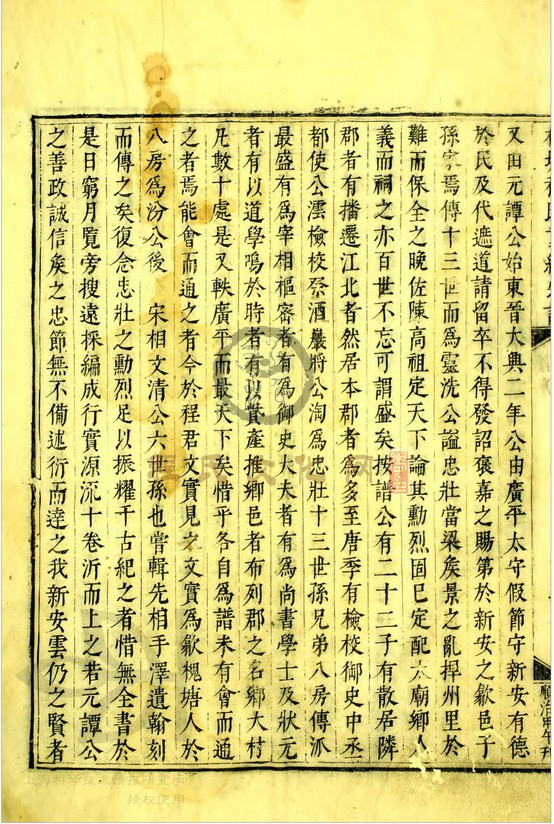 又田元譚公始東晉大興二年公由廣平太守假節守新安有德
於民及代遮道請留卒不得發詔褒嘉之賜第於新安之歙邑子
孫家焉傳十三世而爲靈洗公謚忠壯當梁矦景之亂捍州里於
難而保全之晚佐陳高祖定天下論其勲烈固巳定配太廟鄉人
義而祠之亦百世不忘可謂盛矣按譜公有二十二子有散居隣
郡者有播遷江北者然居本郡者爲多至唐季有檢校御史中丞
都使公澐檢校祭酒巖將公淘爲忠壯十三世孫兄弟八房傳派
最盛有爲宰相樞密者有爲御史大夫者有爲尚書學士及狀元
者有以道學鳴於時者有以貲產推鄉邑者布列郡之名鄉大村
凡數十處是又軼廣平而最天下矣惜乎各自爲譜未有會而通
之者焉能會而通之者今於程君文實見之文實爲歙槐塘人於
八房爲汾公後 宋相文清公六世孫也嘗輯先相手澤遺翰刻
而傳之矣復念忠壯之勳烈足以振耀千古紀之者惜無全書於
是日窮月覽旁搜遠採編成行實源流十卷沂而上之若元譚公
之善政誠信矦之忠節無不備述衍而達之我新安雲仍之賢者
順治甲午刊
授权使用